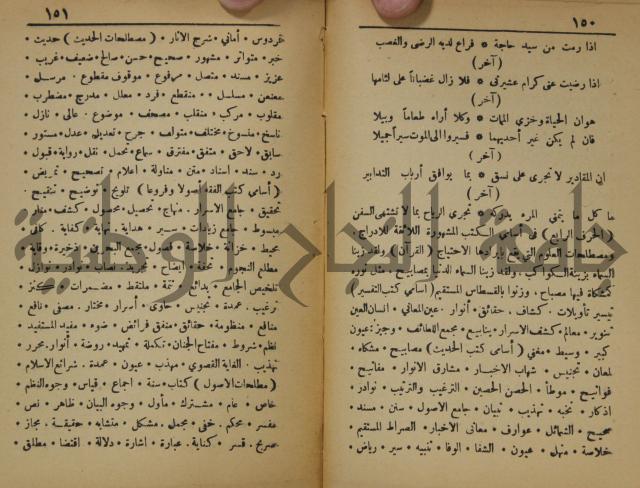 ١٥٠
اذا رمت من سيد حاجة * فراع لديه الرضى والغصب
( آخر )
اذا رضيت عني كرام عشيرتي * فلا زال غضباناً على لئامها
( آخر )
هوان الحياة وخزي الممات * وكلا أراه طعاماً وبيلا
فان لم يكن غير احديهما * فسيروا الى الموت سيراً جميلا
( آخر )
ان المقادير لا تجرى على نسق * بما يوافق أرباب التدابير
( آخر )
ما كل ما يتمنى المرء يدركه * تجرى الرياح بما لا تشتهى السفن
( الحرف الرابع ) في أسامى الكتب المشهورة اللائقة للادراج
ومصطلحات العلوم التي يقع بايرادها الاحتجاج ( القرآن ) ولقد زينا
السماء بزينة الكواكب . ولقد زينا السماء الدنيا بمصابيح . مثل نوره
كمشكاة فيها مصباح . وزنوا بالقسطاس المستقيم ( أسامي كتب التفسير )
تيسير تأويلات . كشاف . حقائق . أنوار . عين المعاني . انسان العين
تنوير . معالم كشف الاسرار . ينابيع . مجمع اللطائف . وجيز . عيون
كبير . وسيط . مغني ( أسامى كتب الحديث ) مصابيح . مشكاة .
لمعان . تجنيس . شهاب الاخبار . مشارق الانوار . مفاتيح .
فواتيح . موطأ . الحصن الحصين . الترغيب والترتيب . نوادر .
اذكار . نخبه . تهذيب . تبيان . جامع الاصول . سنن . مسند .
صحيح . الشمائل . عوارف . معانى الاخبار . الصراط المستقيم .
خلاصة . منهل . عيون . الشفا . الوفا . تنبيه . سير . رياض .
١٥١
فردوس . أماني . شرح الآثار . ( مصطلحات الحديث ) حديث .
خبر . متواتر . مشهور . صحيح . حسن . صالح . ضعيف . غريب .
عزيز . مسند . متصل . مرفوع . موقوف مقطوع . مرسل .
معنعن . مسلسل . منقطع . فرد . معلل . مدرج . مضطرب .
مقلوب . مركب . منقلب . مصحف . موضوع . عالى . نازل .
ناسخ . منسوخ . مختلف . متوالف . جرح . تعديل . عدل . مستور .
سابق . لاحق . متفق . مفترق . سماع . تحمل . نقل . رواية . قبول .
رد . سند . اسناد . متن . مناولة . اعلام . تصحيح . تمريض .
( أسامى كتب الفقه أصولا وفروعا ) تلويح . توضيح . تنقيح .
تحقيق . جامع الاسرار . منهاج . تحصيل . محصول . كشف . منار .
مبسوط . جامع . زيادات . سير . هداية . نهاية . كفاية . كافى .
محيط . خزانة . خلاصة . فصول . مجمع البحرين . ذخيرة . وقاية .
مطلع النجوم . تحفة . ايضاح . تجريد . نصاب . نوادر . نوازل .
تلخيص الجامع . بدائع . تتمة . ملتقط . مضمرات . كنز
ترغيب . عمدة . تجنيس . حاوى . أسرار . مختار . مصفى . نافع .
منافع . منظومة . حقائق . منفق فرائض . ضوء . مفيد المستفيد .
نظم . شروط . مفتاح الجنان . تكملة . تمهيد . روضة . أنوار . محرر .
تهذيب . الغاية القصوى . مهذب . عيون . عمدة . شرائع الاسلام .
( مطلحات الاصول ) كتاب . سنة . اجماع . قياس . وجوه النظم
خاص . عام . مشترك . مأول . وجوه البيان . ظاهر . نص .
مفسر . محكم . خفى . مجمل . مشكل . متشابه . حقيقة . مجاز .
صريح . قسر . كناية . عبارة . اشارة . دلالة . اقتضا . مطلق .
طبعة النجاح الوطنية